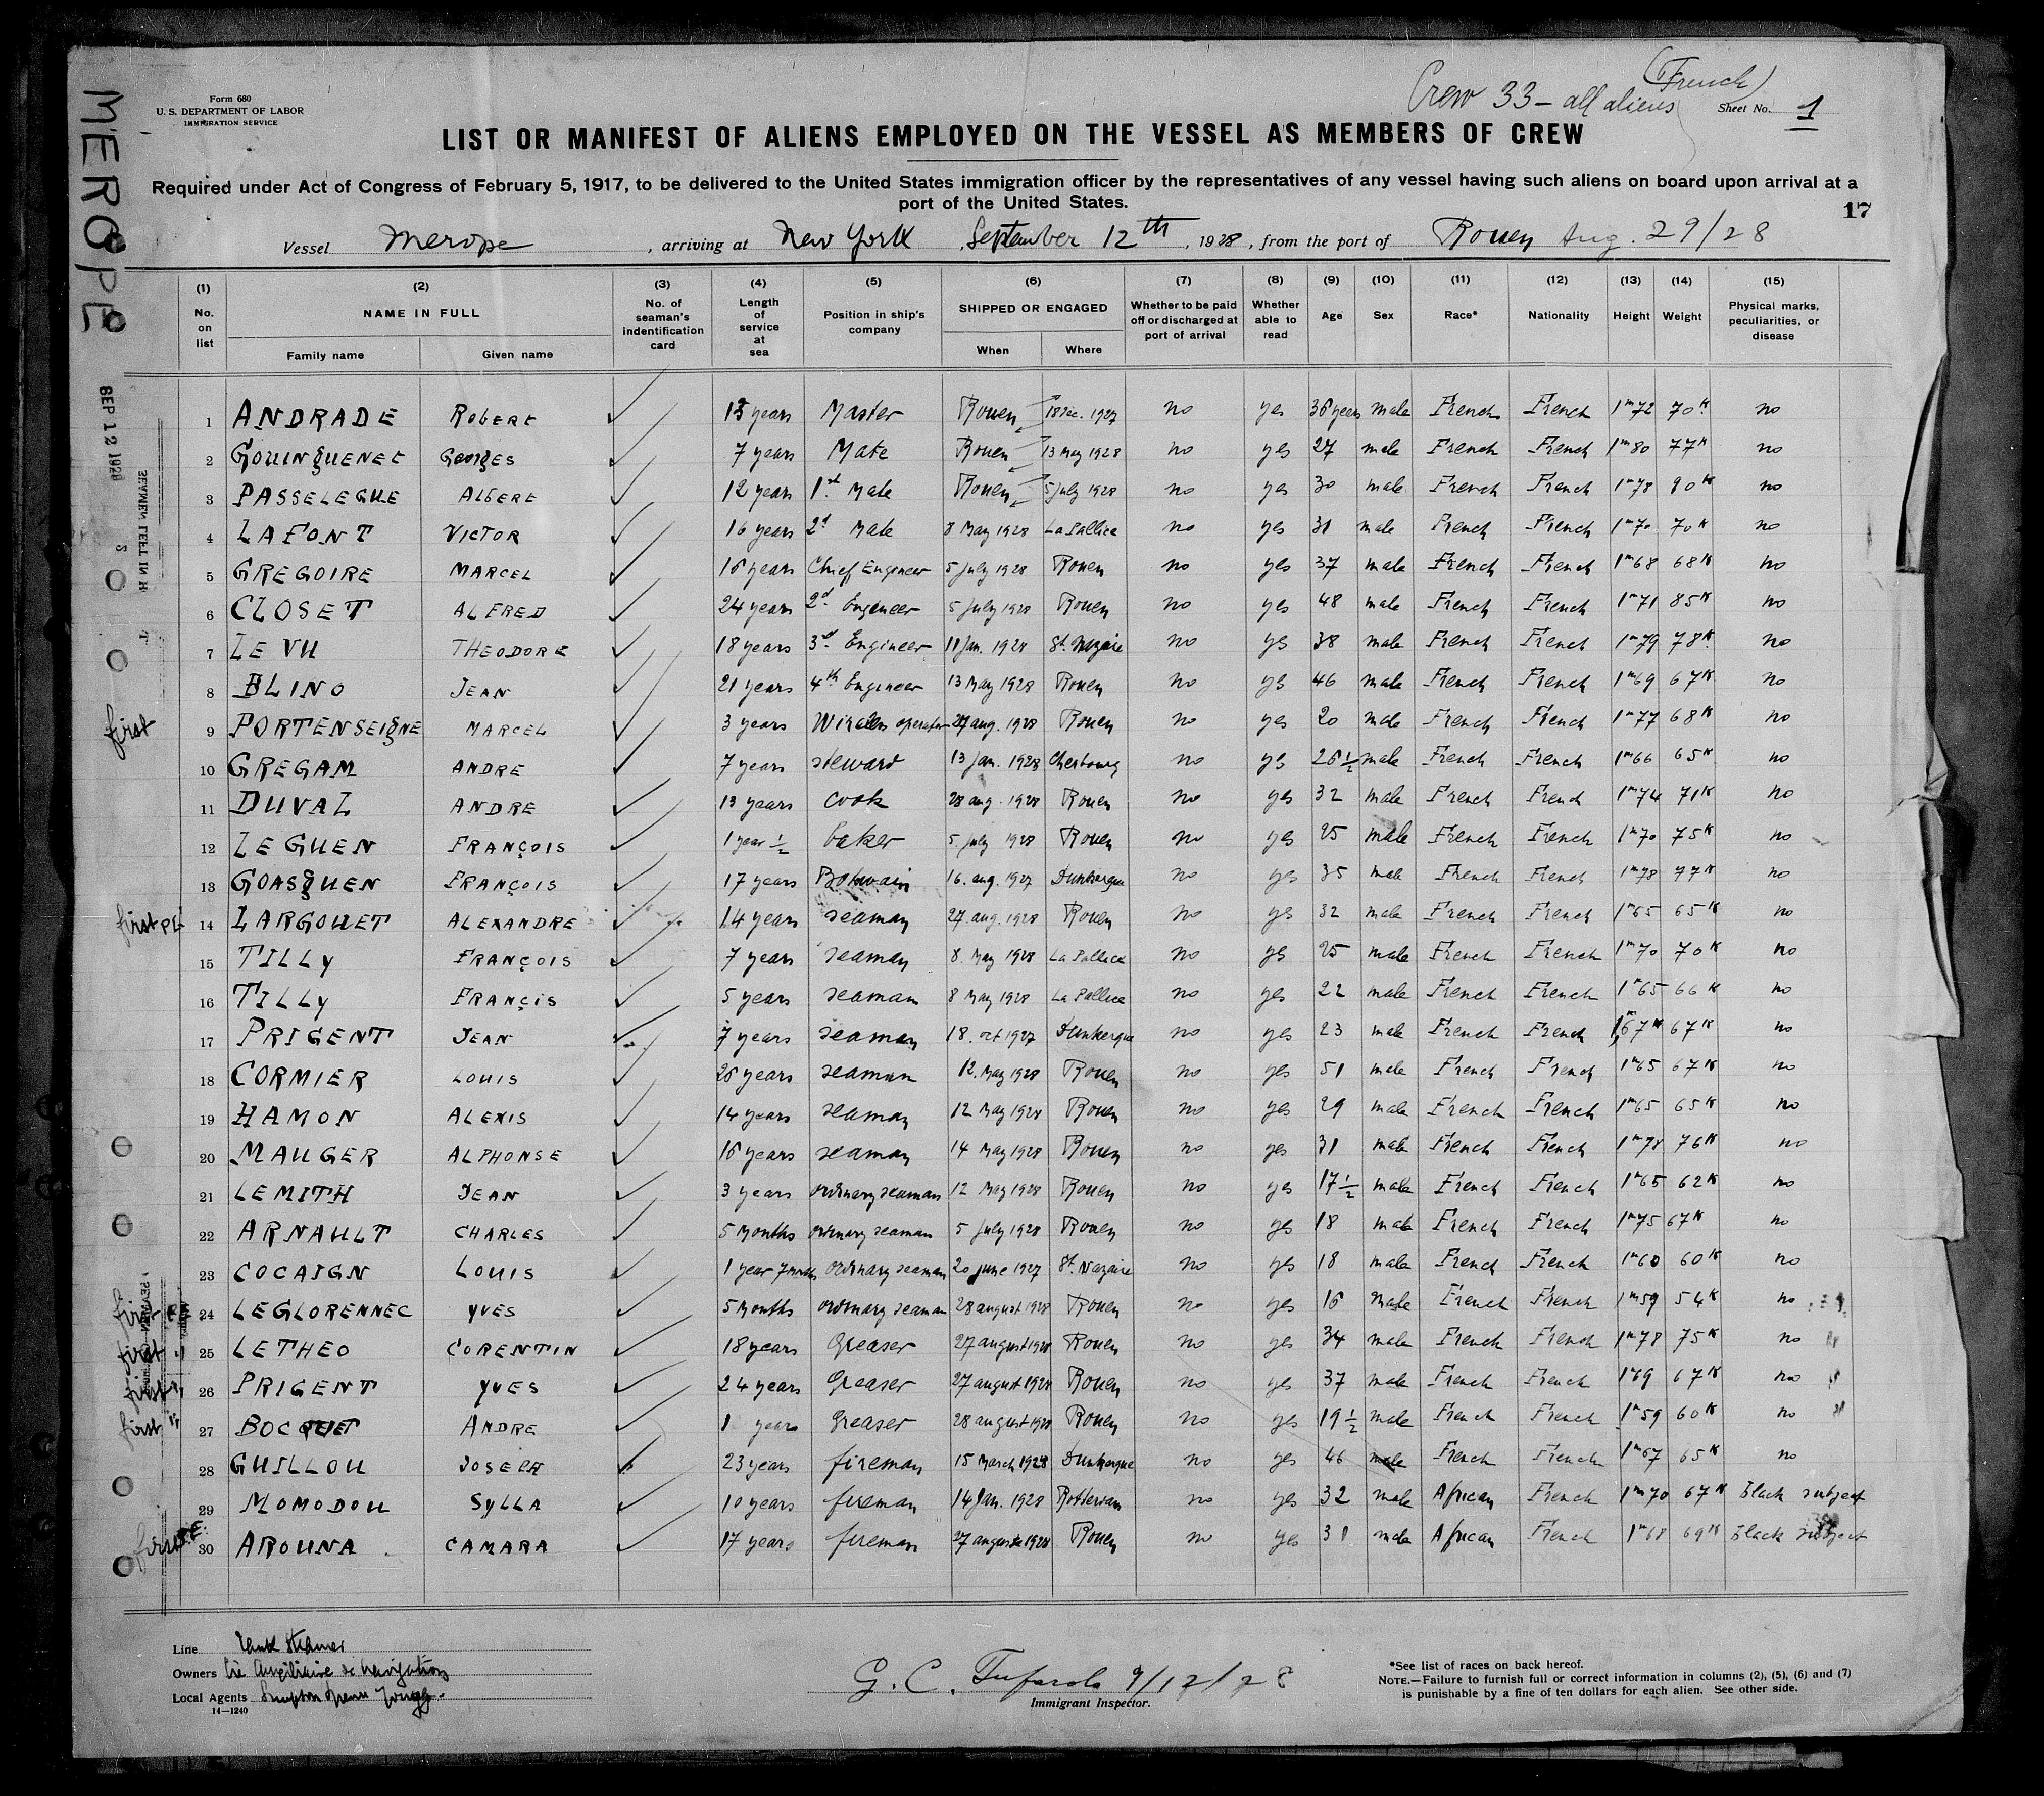 MEROPE
Form 680
U. S. DEPARTMENT OF LABOR
IMMIGRATION SERVICE
Crew 33 - all aliens (French)
Sheet No. 1
LIST OR MANIFEST OF ALIENS EMPLOYED ON THE VESSEL AS MEMBERS OF CREW
Required under Act of Congress of February 5, 1917, to be delivered to the United States immigration officer by the representatives of any vessel having such aliens on board upon arrival at a
port of the United States.
17
Vessel Merope, arriving at New York September 12th, 1928, from the port of Rouen Aug. 29/28
(1) No. on list (2) NAME IN FULL Family name Given name (3) No. of seaman's indentification card (4) Length of service at sea (5) Position in ship's company (6) SHIPPED OR ENGAGED When Where (7) Whether to be paid off or discharged at port of arrival (8) Whether able to read (9) Age (10) Sex (11) Race* (12) Nationality (13) Height (14) Weight (15) Physical marks, peculiarities, or disease
SEP 12 1928
1 ANDRADE ROBERT 13 years Master Rouen 18 Dec. 1927 no yes 36 years male French French 1m72 70K no
2 GOUINGUENET GEORGES 7 years Mate Rouen 13 May 1928 no yes 27 male French French 1m80 77K no
3 PASSELEGUE ALBERT 12 years 1st Mate Rouen 5 July 1928 no yes 30 male French French 1m78 90K no
4 LAFONT VICTOR 16 years 2d Mate 8 May 1928 La Pallice no yes 31 male French French 1m70 70K no
5 GREGOIRE MARCEL 16 years Chief Engineer 5 July 1928 Rouen no yes 37 male French French 1m68 68K no
6 CLOSET ALFRED 24 years 2d Engineer 5 July 1928 Rouen no yes 48 male French French 1m71 85K no
7 LE VU THEODORE 18 years 3rd Engineer 11 Jan. 1928 St. Nazaire no yes 38 male French French 1m79 78K no
8 BLINO JEAN 21 years 4th Engineer 13 May 1928 Rouen no yes 46 male French French 1m69 67K no
first 9 PORTENSEIGNE MARCEL 3 years Wireless operator 27 aug. 1928 Rouen no yes 20 male French French 1m77 68K no
10 GREGAM ANDRE 7 years steward 13 Jan. 1928 Cherbourg no yes 26 1/2 male French French 1m66 65K no
11 DUVAL ANDRE 13 years cook 28 aug. 1928 Rouen no yes 32 male French French 1m74 71K no
12 LE GUEN FRANÇOIS 1 year 1/2 baker 5 July 1928 Rouen no yes 25 male French French 1m70 75K no
13 GOASGUEN FRANÇOIS 17 years Botswain 16. aug. 1927 Dunkerque no yes 35 male French French 1m78 77K no
first 14 LARGOUET ALEXANDRE 14 years seaman 27 aug. 1928 Rouen no yes 32 male French French 1m65 65K no
15 TILLY FRANÇOIS 7 years seaman 8. May 1928 La Pallice no yes 25 male French French 1m70 70K no
16 TILLY FRANÇIS 5 years seaman 8 May 1928 La Pallice no yes 22 male French French 1m65 66K no
17 PRIGENT JEAN 7 years seaman 18. oct 1927 Dunkerque no yes 23 male French French 1m67 67K no
18 CORMIER LOUIS 26 years seaman 12. May 1928 Rouen no yes 51 male French French 1m65 67K no
19 HAMON ALEXIS 14 years seaman 12 May 1928 Rouen no yes 29 male French French 1m65 65K no
20 MAUGER ALPHONSE 16 years seaman 14 May 1928 Rouen no yes 31 male French French 1m78 76K no
21 LEMITH JEAN 3 years ordinary seaman 12 May 1928 Rouen no yes 17 1/2 male French French 1m65 62K no
22 ARNAULT CHARLES 5 Months ordinary seaman 5 July 1928 Rouen no yes 18 male French French 1m75 67K no
23 COCAIGN LOUIS 1 year 7 month ordinary seaman 20 June 1927 St. Nazaire no yes 18 male French French 1m60 60K no
24 LEGLORENNEC YVES 5 Months ordinary seaman 28 august 1928 Rouen no yes 16 Male French French 1m59 54K no
first 25 LETHEO CORENTIN 18 years Greaser 27 august 1928 Rouen no yes 34 male French French 1m78 75K no
first 26 PRIGENT YVES 24 years Greaser 27 august 1928 Rouen no yes 37 male French French 1m69 67K no
first 27 BOCQUET ANDRE 1 years Greaser 28 august 1928 Rouen no yes 19 1/2 male French French 1m59 60K no
28 GUILLOU JOSEPH 23 years fireman 15 March 1928 Dunkerque no yes 46 male French French 1m67 65K no
29 MOMODOU SYLLA 10 years fireman 14 Jan. 1928 Rotterdam no yes 32 male African French 1m70 67K Black subject
first 30 AROUNA CAMARA 17 years fireman 27 august 1928 Rouen no yes 31 male African French 1m68 69K Black subject
Line Tank Steamer
Owners Cie Auxiliaire de Navigation
Local Agents Simpson Spence Young
14—1240
G. C. Tuforolo 9/12/28
Immigrant Inspector.
*See list of races on back hereof.
NOTE.—Failure to furnish full or correct information in columns (2), (5), (6) and (7)
is punishable by a fine of ten dollars for each alien. See other side.